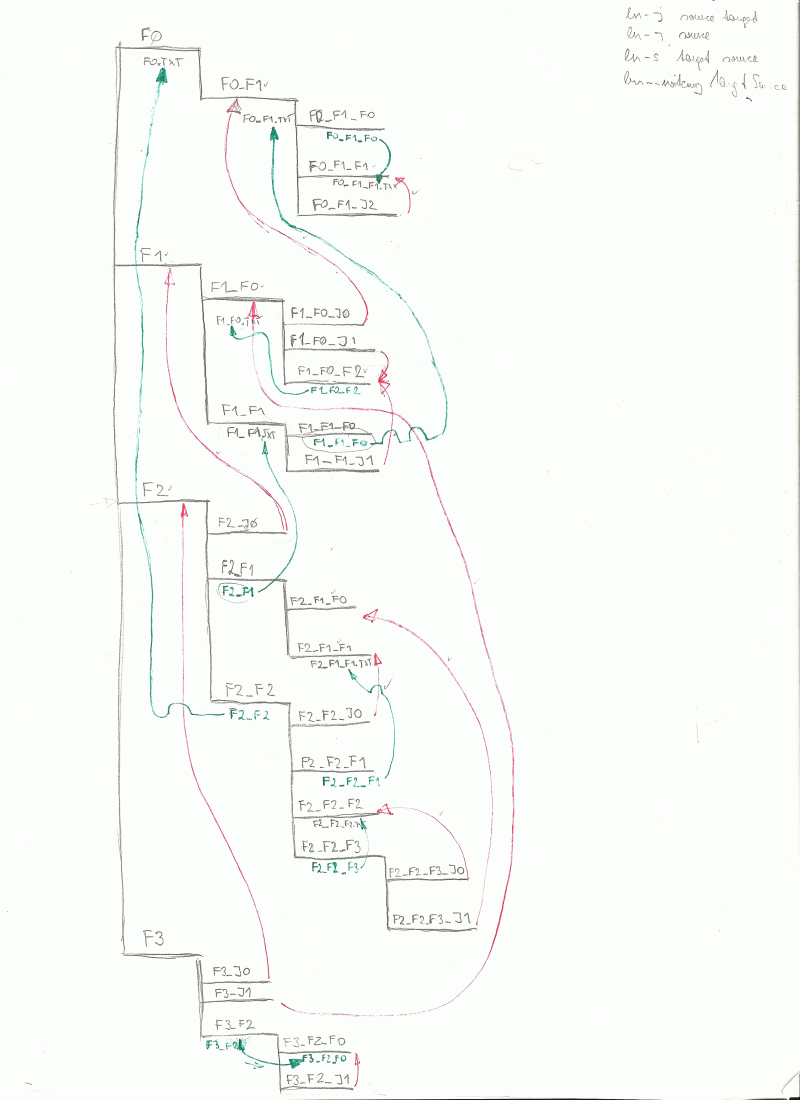 ln -j source target
ln -j source
ln -s target source
F0
F0.TXT
F0_F1
F0_F1.TXT
F0_F1_F0
F0_F1_F0
F0_F1_F1
F0_F1_F1.TXT
F0_F1_J2
F1
F1_F0
F1_F0.TXT
F1_F0_J0
F1_F0_J1
F1_F0_F2
F1_F0_F2
F1_F1
F1_F1.TXT
F1_F1_F0
F1_F1_F0
F1_F1_J1
F2
F2_J0
F2_F1
F2_F1
F2_F1_F0
F2_F1_F1
F2_F1_F1.TXT
F2_F2
F2_F2
F2_F2_J0
F2_F2_F1
F2_F2_F1
F2_F2_F2
F2_F2_F2.TXT
F2_F2_F3
F2_F2_F3
F2_F2_F3_J0
F2_F2_F3_J1
F3
F3_J0
F3_J1
F3_F2
F3_F2
F3_F2_F0
F3_F2_F0
F3_F2_J1